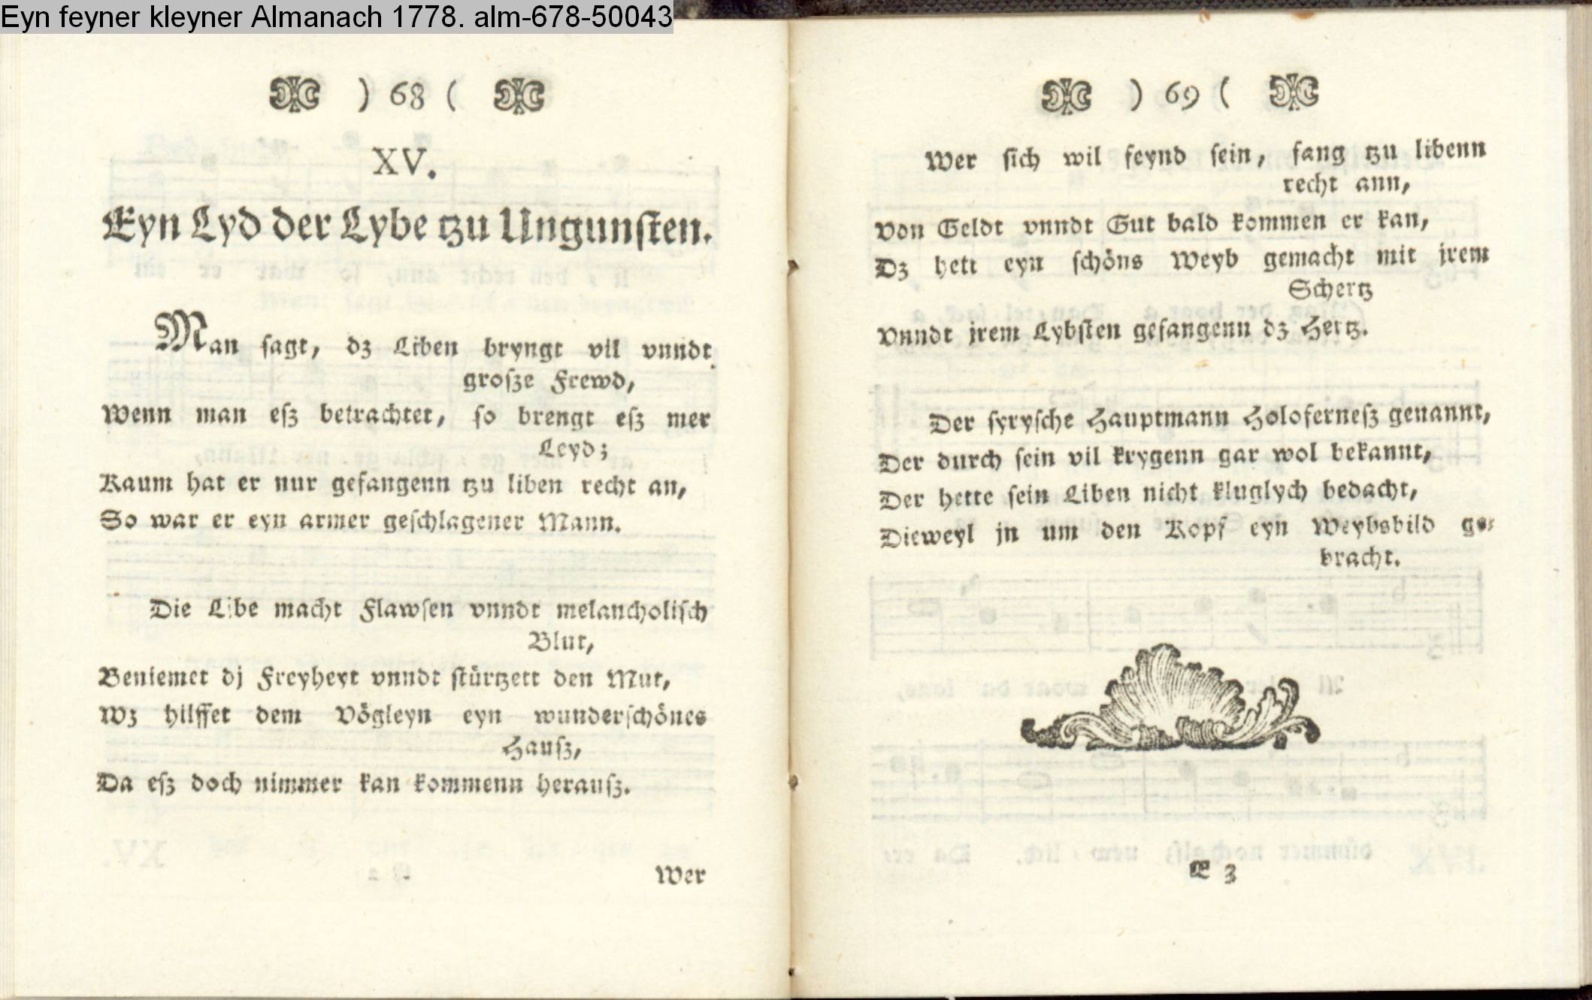 Eyn feyner kleyner Almanach 1778. alm-678-50043
) 68 (
XV.
Eyn Lyd der Lybe tzu Ungunsten.
Man sagt, dz Liben bryngt vil vnndt
groſze Frewd,
Wenn man eſz betrachtet, ſo brengt eſz mer
Leyd;
Kaum hat er nur gefangenn tzu liben recht an,
So war er eyn armer geſchlagener Mann.
Die Libe macht Flawſen vnndt melancholiſch
Blut,
Beniemet dj Freyheyt vnndt ſtürtzett den Mut,
Wz hilffet dem Vögleyn eyn wunderſchönes
Hauſz,
Da eſz doch nimmer kan kommenn herauſz.
Wer
) 69 (
Wer ſich wil feynd ſein, fang tzu libenn
recht ann,
Von Geldt vnndt Gut bald kommen er kan,
Dz hett eyn ſchöns Weyb gemacht mit jrem
Schertz
Vnndt jrem Lybſten gefangenn dz Hertz.
Der ſyryſche Hauptmann Holoferneſz genannt,
Der durch ſein vil krygenn gar wol bekannt,
Der hette ſein Liben nicht kluglych bedacht,
Dieweyl jn um den Kopf eyn Weybsbild ge⸗
bracht.
E 3